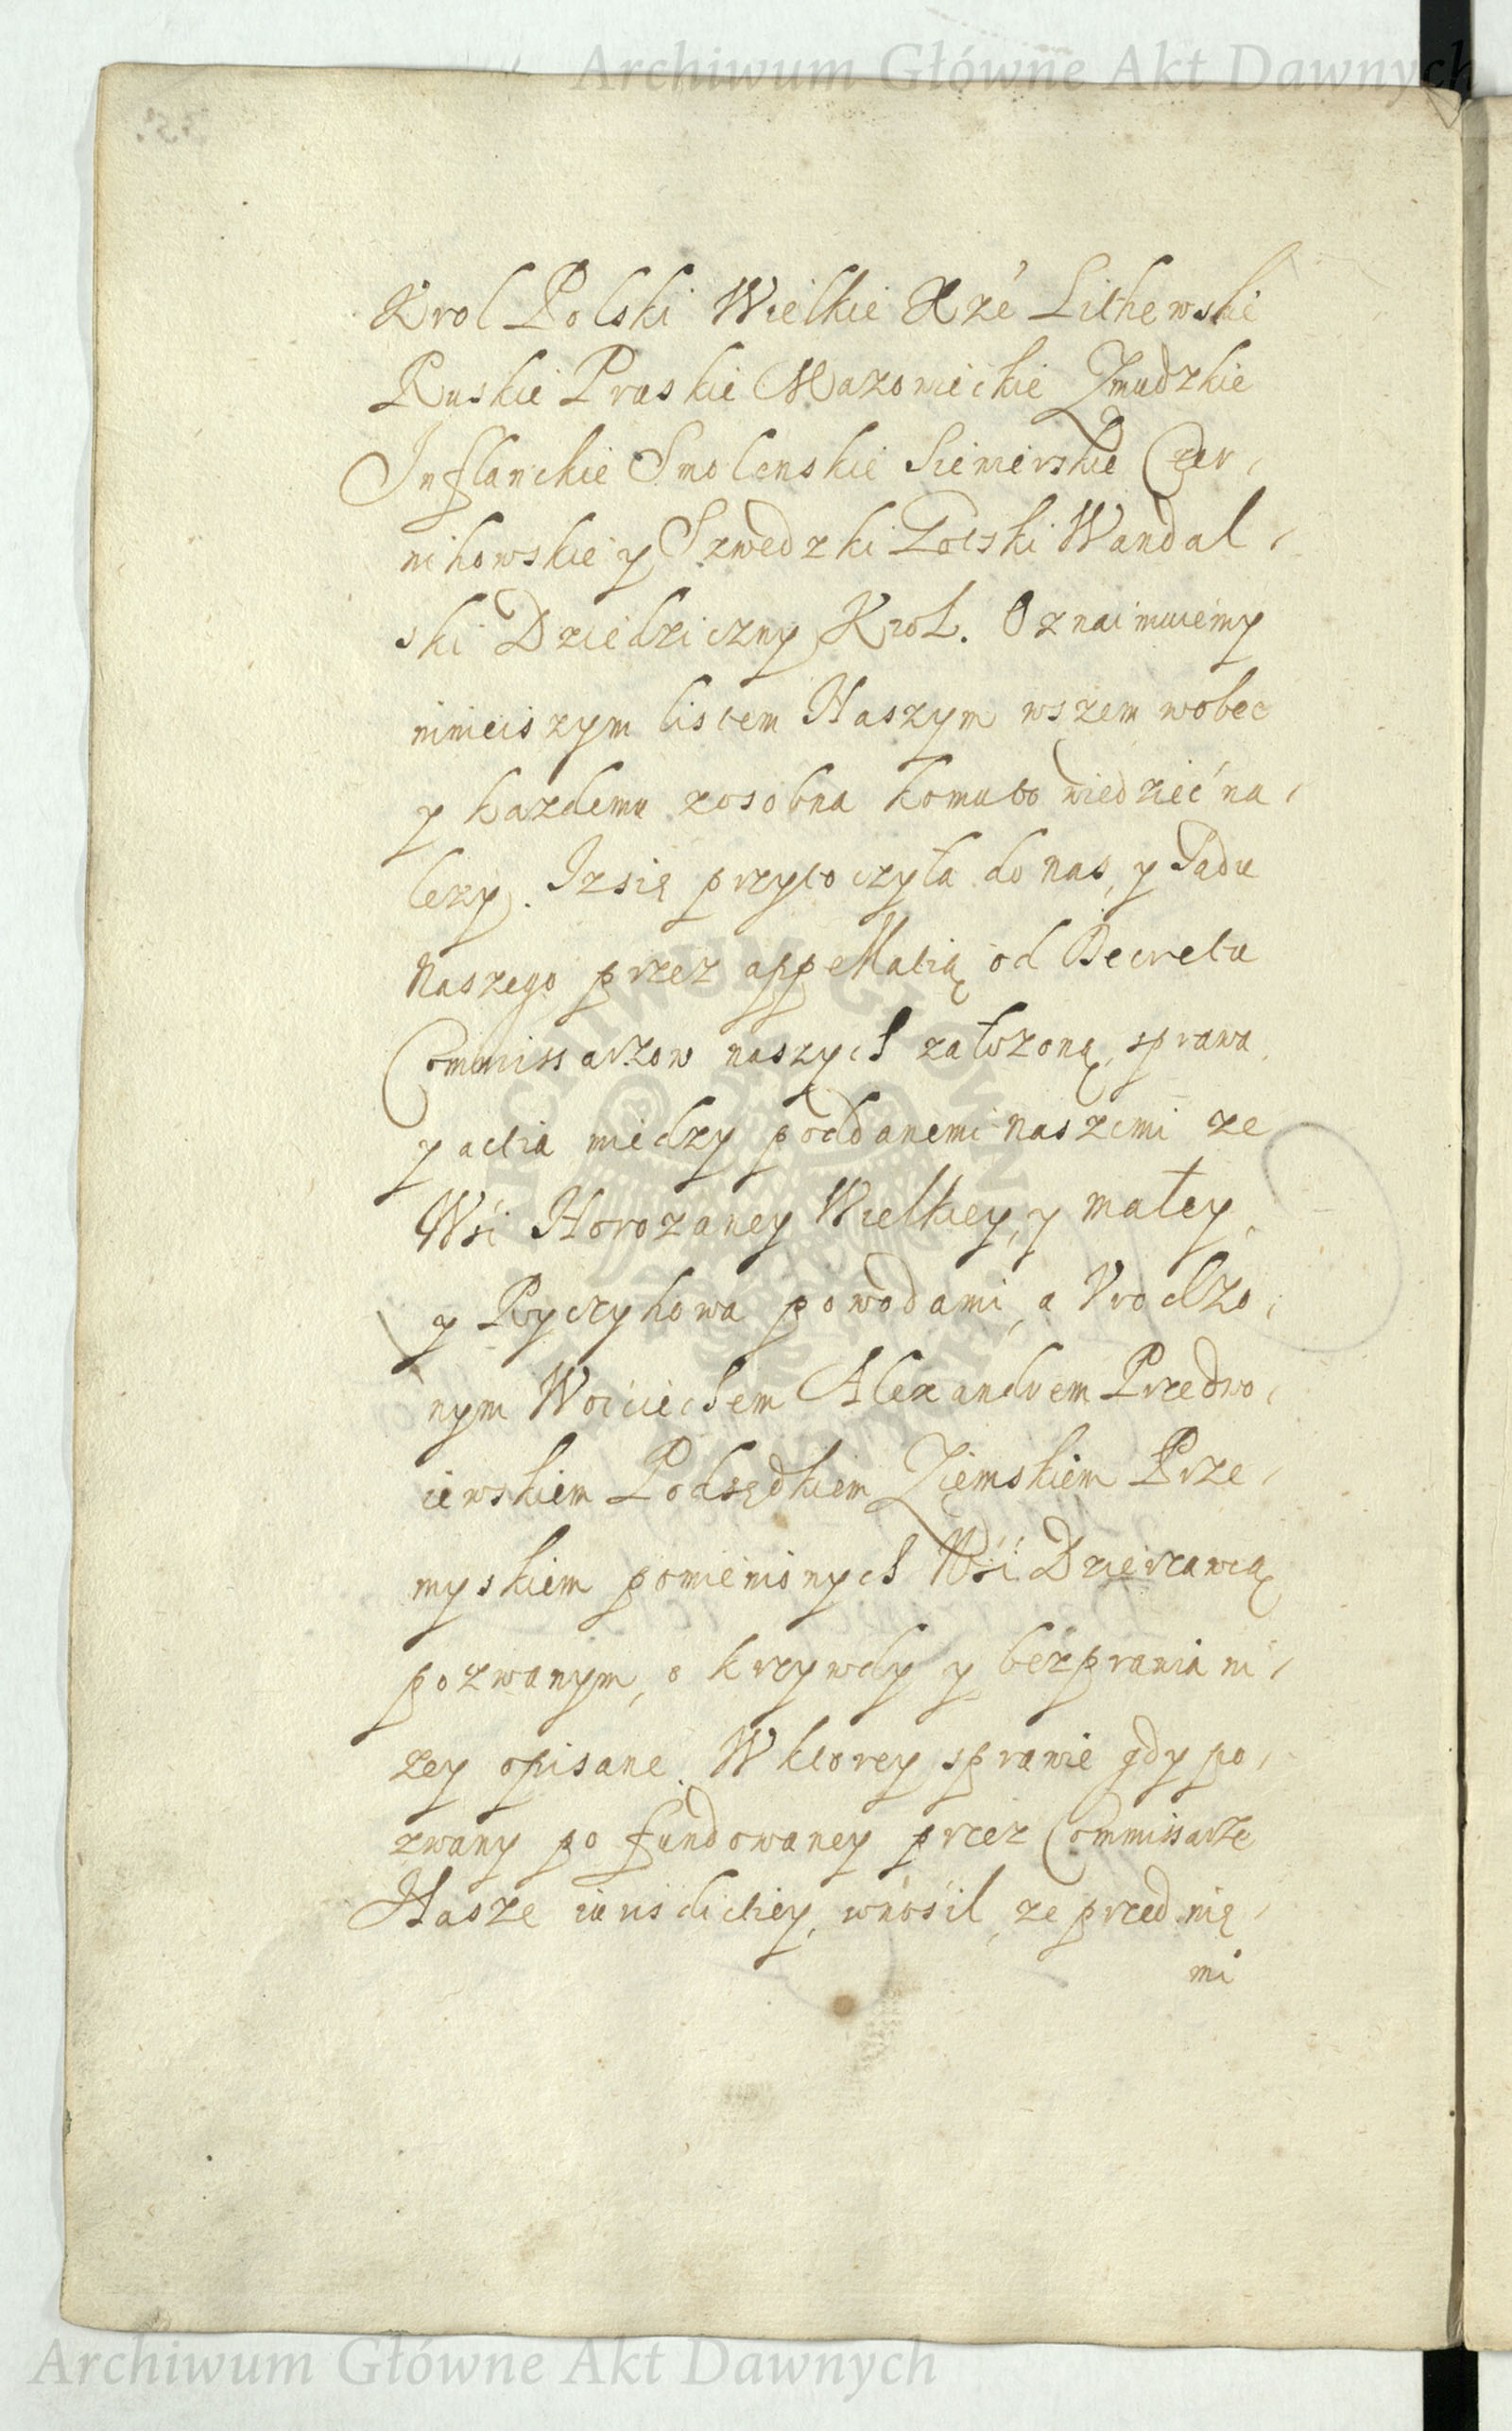 Archiwum Główne Akt Dawnych
Krol Polski Wielkie Xżé Lithewskie
Ruskie Pruskie Mazowieckie Zmudzkie
Inflanckie Smolenskie Siewierskie Czer,
nihowskie y Szwedzki Gotski Wandal,
ski Dziedziczny Krol. Oznaimuiemy
ninieiszym listem Naszym wszem wobec
y kazdemu zosobna komu to wiedzieć na,
lezy. Iz się przytoczyła do nas, y Sadu
naszego przez appellatią od Decretu
Commissarzow naszych załozoną, sprawa,
y actia miedzy poddanemi naszemi ze
Wśi Horozaney Wielkiey, y małey,
y Ryczyhowa powodami, a Vrodzo,
nym Woiciechem Alexandrem Przedwo,
iewskiem Podsędkiem Ziemskiem Prze,
myskiem pomienionych Wśi Dzierzawcą
pozwanym, o krzywdy y bezprawia ni,
zey opisane. W ktorey sprawie gdy po,
zwany po fundowaney przez Commissarze
Nasze iurisdictiey, wnosil, ze przed nią,
mi
Archiwum Główne Akt Dawnych